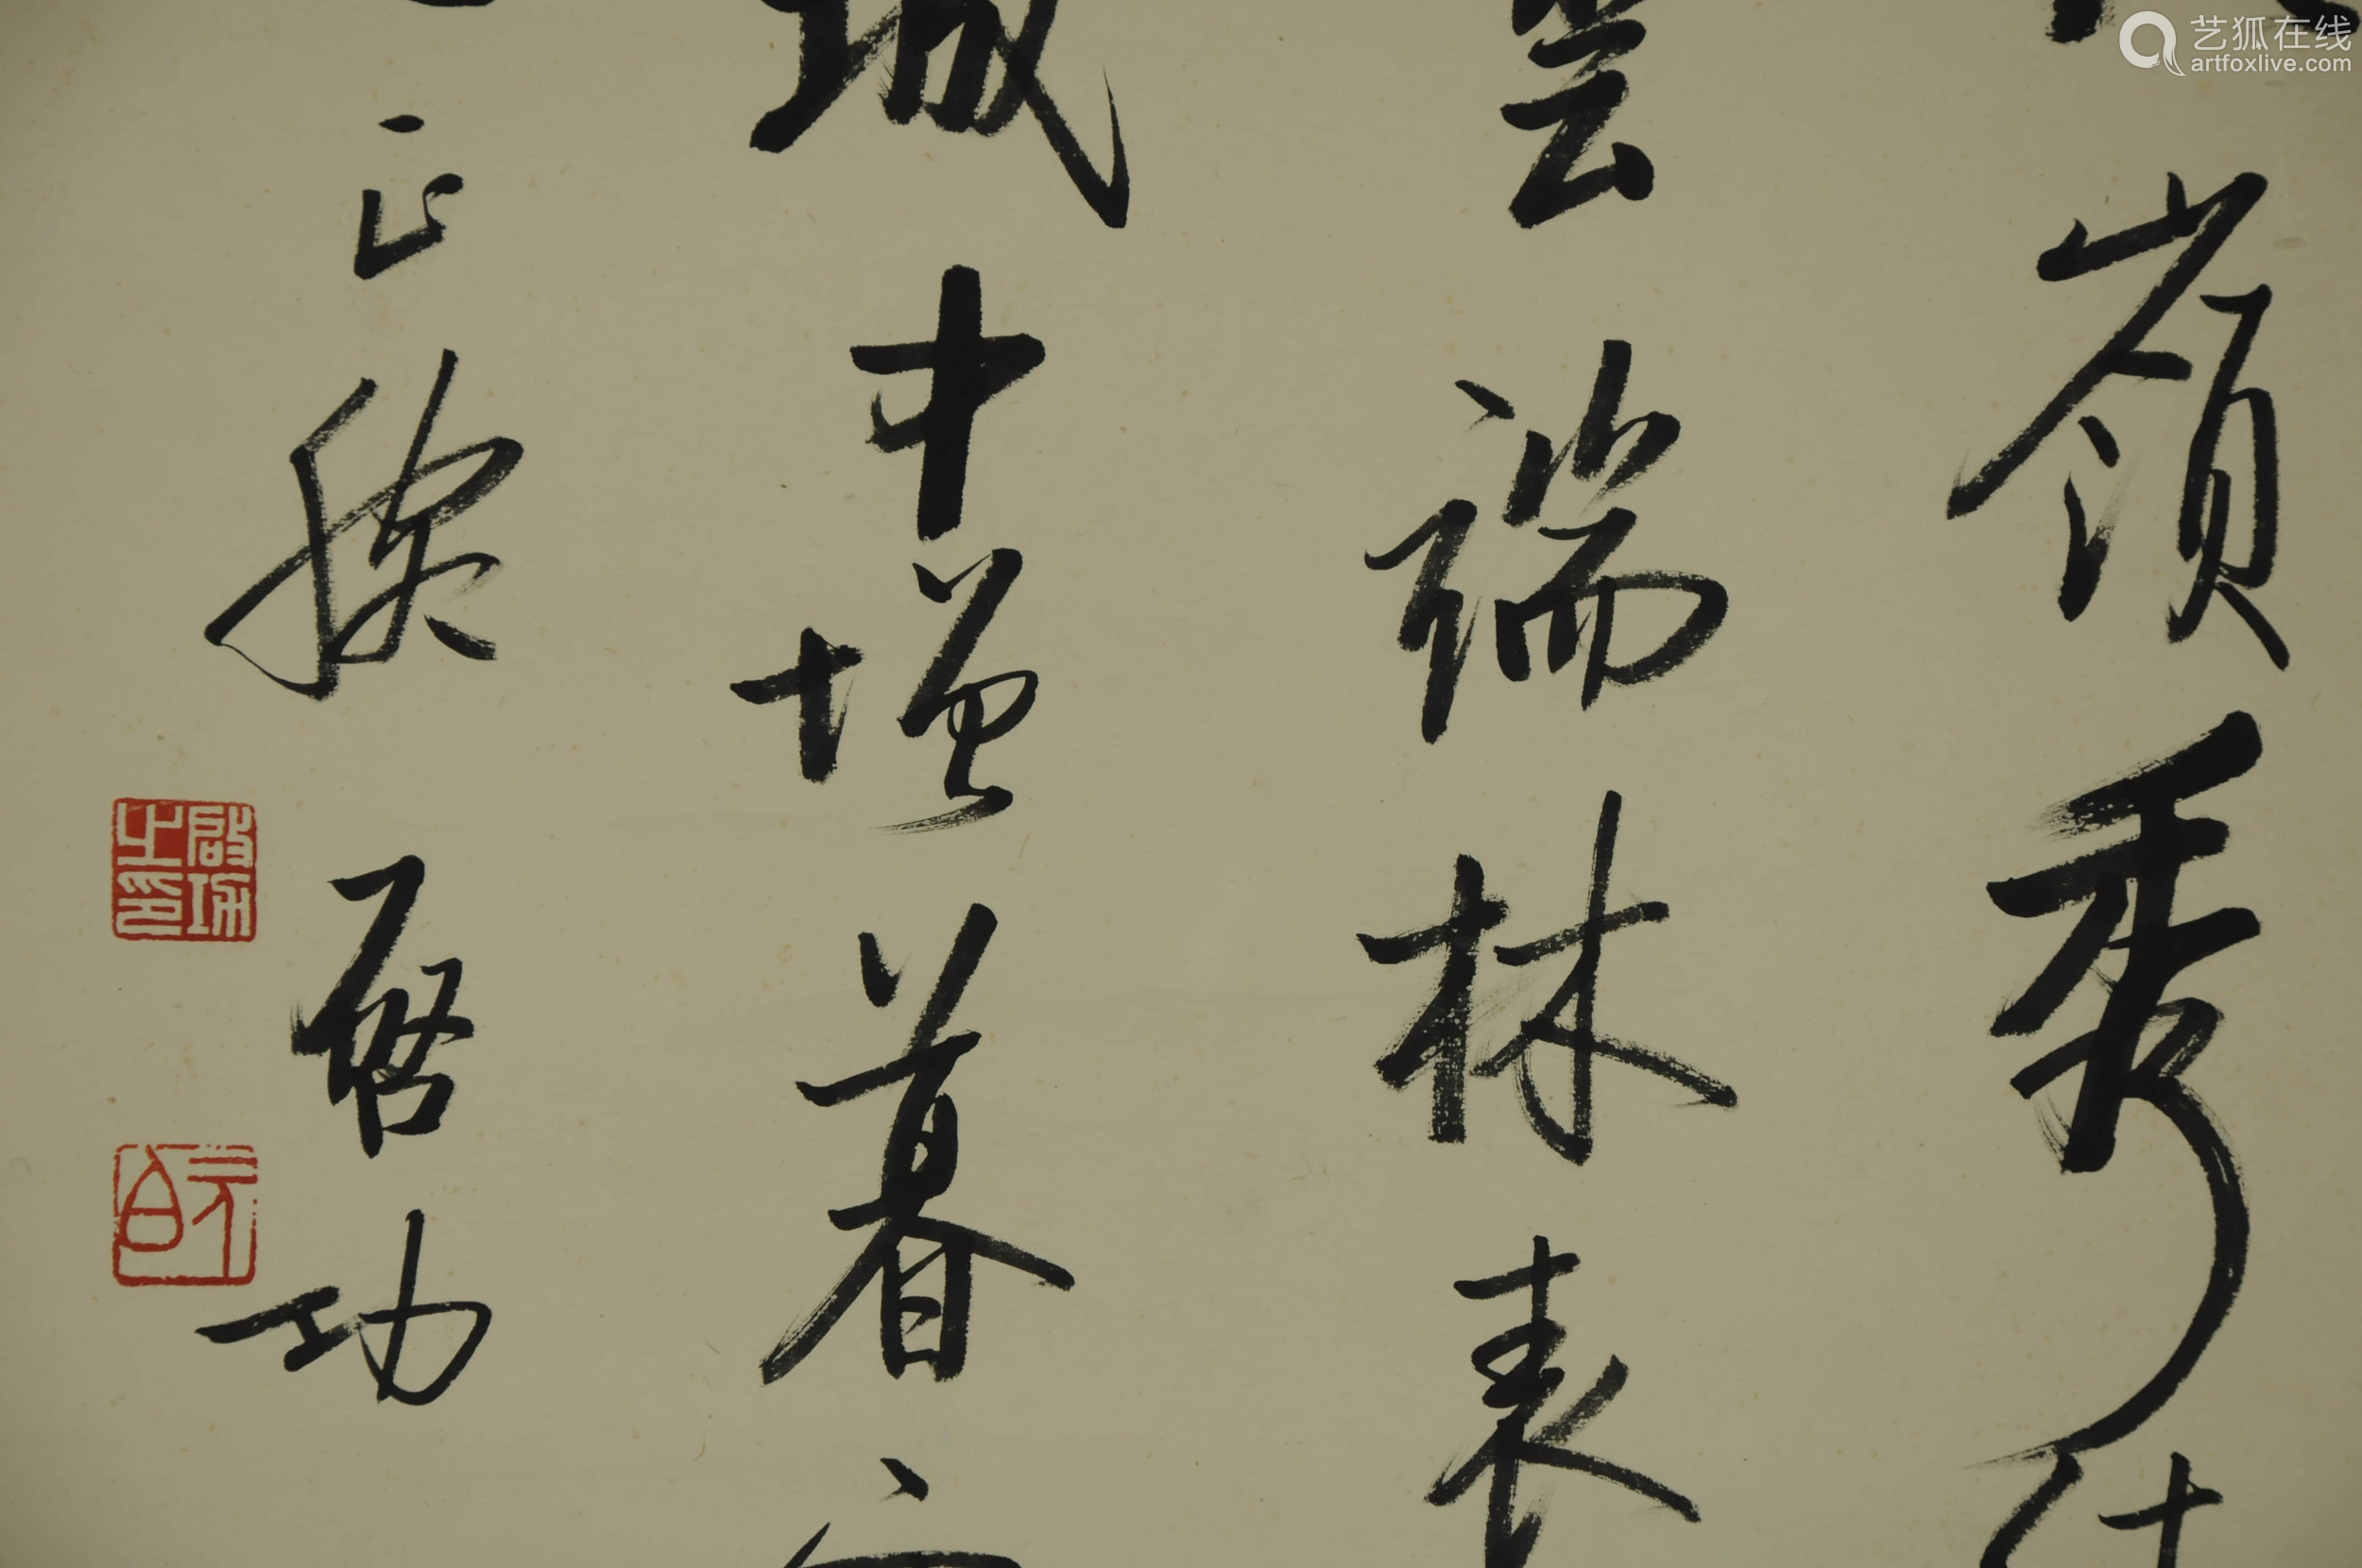 嶺秀
雲端林表
城中增暮
正腕 啓功
啟功之印
元白
艺狐在线
artfoxlive.com